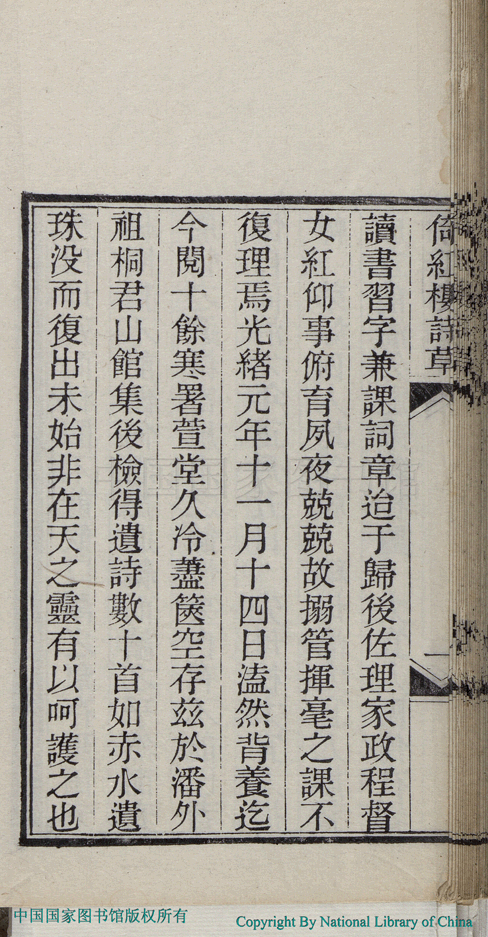 倚紅樓詩草
一
讀書習字兼課詞章迨于歸後佐理家政程督
女紅仰事俯育夙夜兢兢故搦管揮毫之課不
復理焉光緒元年十一月十四日溘然背養迄
今閱十餘寒暑萱堂久冷藎篋空存兹於潘外
祖桐君山館集後檢得遺詩數十首如赤水遺
珠没而復出未始非在天之靈有以呵護之也
中国国家图书馆版权所有
Copyright By National Library of China